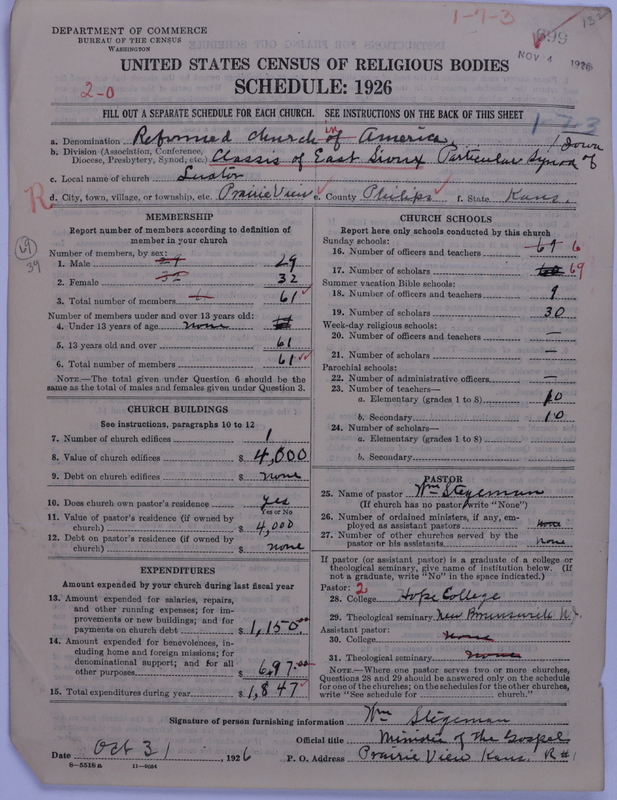 1-7-3
699
132
DEPARTMENT OF COMMERCE
BUREAU OF THE CENSUS
WASHINGTON
NOV 4 1926
UNITED STATES CENSUS OF RELIGIOUS BODIES
2-0
SCHEDULE: 1926
FILL OUT A SEPARATE SCHEDULE FOR EACH CHURCH. SEE INSTRUCTIONS ON THE BACK OF THIS SHEET
1-7-3
a. Denomination Reformed Church in of America
b. Division (Association, Conference, Diocese, Presbytery, Synod, etc.) Classis of East Sioux Particular Synod of Iowa
c. Local name of church Luctor
R
d. City, town, village, or township, etc. Prairie View e. County Philips f. State Kans.
MEMBERSHIP
Report number of members according to definition of
member in your church
69
39
Number of members, by sex:
1. Male 29
2. Female 32
3. Total number of members 61
Number of members under and over 13 years old:
4. Under 13 years of age none
5. 13 years old and over 61
6. Total number of members 61
NOTE.—The total given under Question 6 should be the
same as the total of males and females given under Question 3.
CHURCH BUILDINGS
See instructions, paragraphs 10 to 12
7. Number of church edifices 1
8. Value of church edifices $ 4,000
9. Debt on church edifices $ none
10. Does church own pastor's residence yes
Yes or No
11. Value of pastor's residence (if owned by
church) $ 4,000
12. Debt on pastor's residence (if owned by
church) $ none
EXPENDITURES
Amount expended by your church during last fiscal year
13. Amount expended for salaries, repairs,
and other running expenses; for im-
provements or new buildings; and for
payments on church debt $ 1,150.00
14. Amount expended for benevolences, in-
cluding home and foreign missions; for
denominational support; and for all
other purposes $ 697.00
15. Total expenditures during year $ 1,847
CHURCH SCHOOLS
Report here only schools conducted by this church
Sunday schools:
16. Number of officers and teachers 69 6
17. Number of scholars 69
Summer vacation Bible schools:
18. Number of officers and teachers 9
19. Number of scholars 30
Week-day religious schools:
20. Number of officers and teachers —
21. Number of scholars —
Parochial schools:
22. Number of administrative officers —
23. Number of teachers—
a. Elementary (grades 1 to 8) 10
b. Secondary 10
24. Number of scholars—
a. Elementary (grades 1 to 8)
b. Secondary
PASTOR
25. Name of pastor Wm Stegeman
(If church has no pastor, write "None")
26. Number of ordained ministers, if any, em-
ployed as assistant pastors none
27. Number of other churches served by the
pastor or his assistants none
If pastor (or assistant pastor) is a graduate of a college or
theological seminary, give name of institution below. (If
not a graduate, write "No" in the space indicated.)
Pastor: 2
28. College Hope College
29. Theological seminary New Brunswick N.J.
Assistant pastor:
30. College None
31. Theological seminary none
NOTE.—Where one pastor serves two or more churches,
Questions 28 and 29 should be answered only on the schedule
for one of the churches; on the schedules for the other churches,
write "See schedule for church."
Signature of person furnishing information Wm Stegeman
Official title Minister of the Gospel
Date Oct 31, 1926 P. O. Address Prairie View Kans. R#1
8—5518 a 11—9084